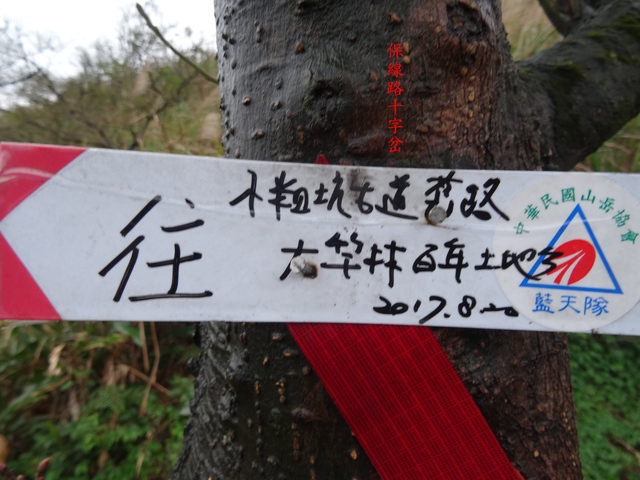 保線路十字岔
往
小粗坑古道舊路
大華林百年土地公
2017.8.20
中華民國山岳協會
藍天隊